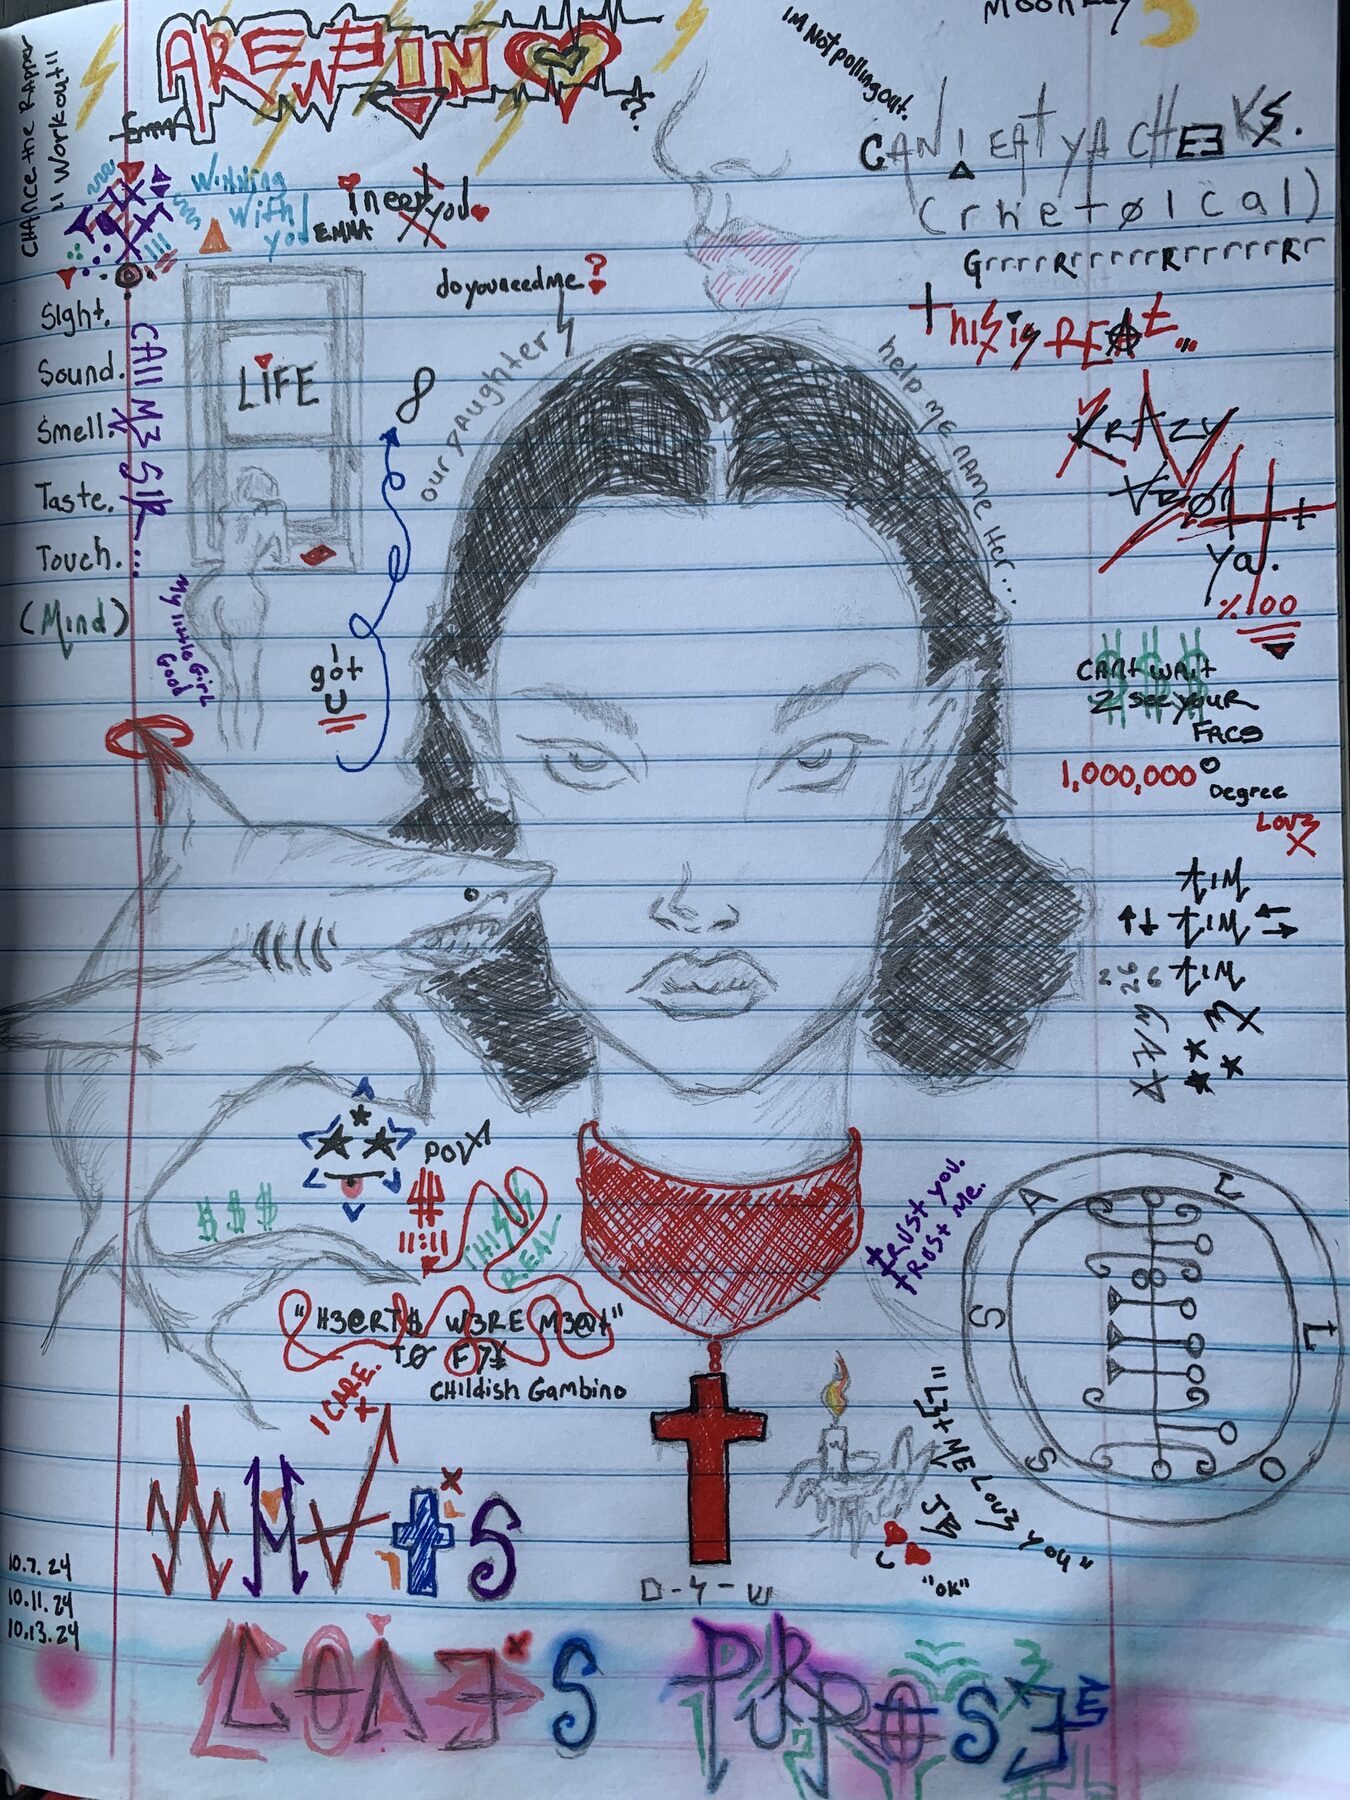 CHANCE the RAPPER
"WORKOUT"
AREWEIN
?
Emma
IM NOt pulling out.
MOONKEY
CAN I EAT YA CHEEKS.
(rhetorical)
GrrrrRrrrrrRrrrrrrRr
tHiS is REAL...
Winning
with
you
EMMA
i need you.
do you need me?
our DAughter
help ME NAME Her...
Sight.
Sound.
Smell.
Taste.
Touch.
(Mind)
CAll M3 SIR...
LiFE
My little Girl
Good
I
got
U
KRAZY
ya.
%100
$$$
CANt WAit
2 see youR
FACE
1,000,000°
Degree
LOV3
tIM
tIM
tIM
$$$
11:11
tHiS iS
REAL
tRUSt you.
tRUSt Me.
"H3@RT$ W3RE M3@t"
TO FLY
CHIldish Gambino
I CARE.
"L3t ME LOV3 you"
JAY
"OK"
A L L O S S
10.7.24
10.11.24
10.13.24
D-4-W
LOVE'S PURPOSE